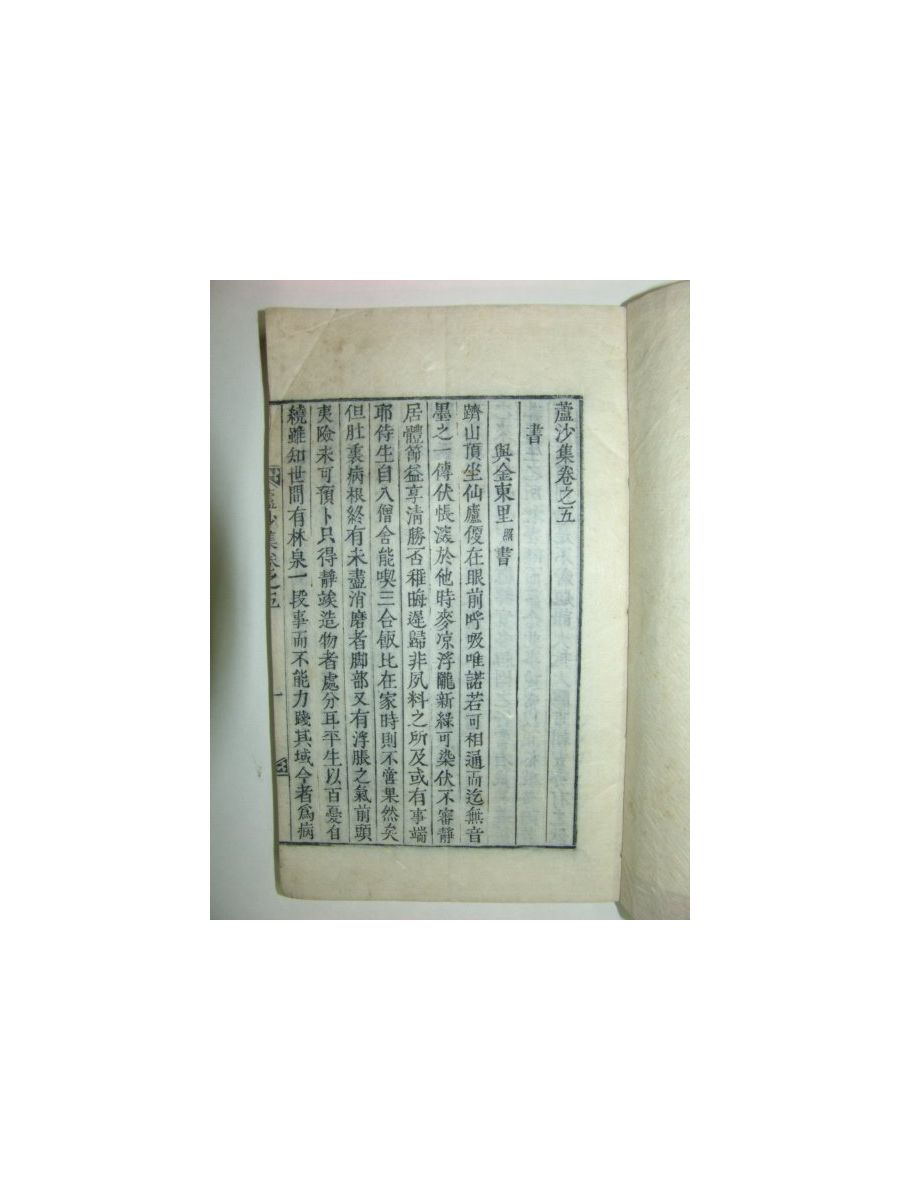 蘆沙集卷之五
書
與金東里 照 書
躋山頂坐仙廬僾在眼前呼吸唯諾若可相通而迄無音
墨之一傳伏悵滾於他時麥凉浮隴新綠可染伏不審靜
居體節益享淸勝否稚晦遲歸非夙料之所及或有事端
耶侍生自入僧舍能喫三合飯比在家時則不啻果然矣
但肚裏病根終有未盡消磨者脚部又有浮脹之氣前頭
夷險未可預卜只得靜竢造物者處分耳平生以百憂自
繞雖知世間有林泉一段事而不能力踐其域今者爲病
蘆沙集卷之五 一